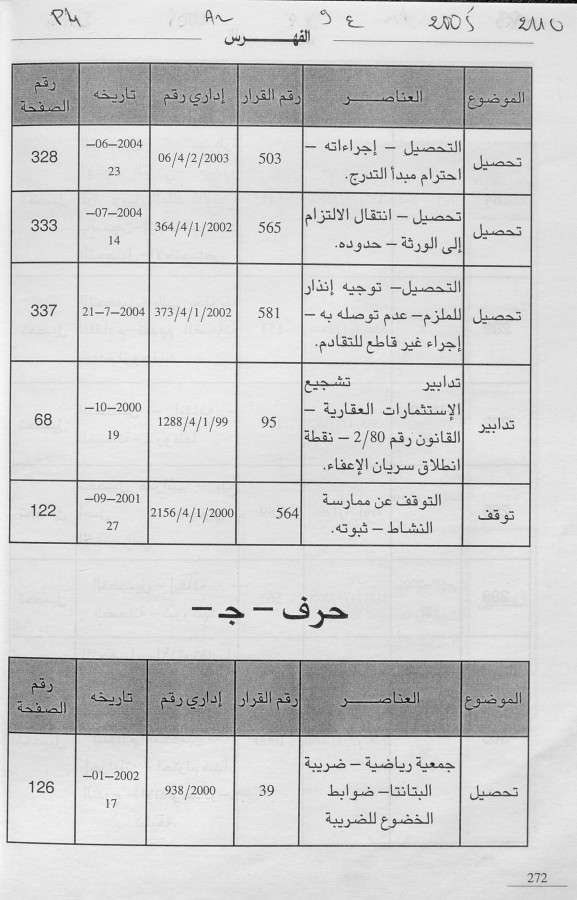 P4 A~ 9 ع 2005 2110
الفهـــرس
الموضوع العناصـــر رقم القرار إداري رقم تاريخه رقم الصفحة
تحصيل التحصيل – إجراءاته – 503 06/4/2/2003 –06–2004 328
احترام مبدأ التدرج. 23
تحصيل تحصيل – انتقال الالتزام 565 364/4/1/2002 –07–2004 333
إلى الورثة – حدوده. 14
تحصيل التحصيل– توجيه إنذار 581 373/4/1/2002 21-7–2004 337
للملزم– عدم توصله به –
إجراء غير قاطع للتقادم.
تدابير تدابير تشجيع 95 1288/4/1/99 –10–2000 68
الإستثمارات العقارية – 19
القانون رقم 2/80 – نقطة
انطلاق سريان الإعفاء.
توقف التوقف عن ممارسة 564 2156/4/1/2000 –09–2001 122
النشاط – ثبوته. 27
حرف – جـ –
الموضوع العناصـــر رقم القرار إداري رقم تاريخه رقم الصفحة
تحصيل جمعية رياضية – ضريبة 39 938/2000 –01–2002 126
البتانتا– ضوابط 17
الخضوع للضريبة
272